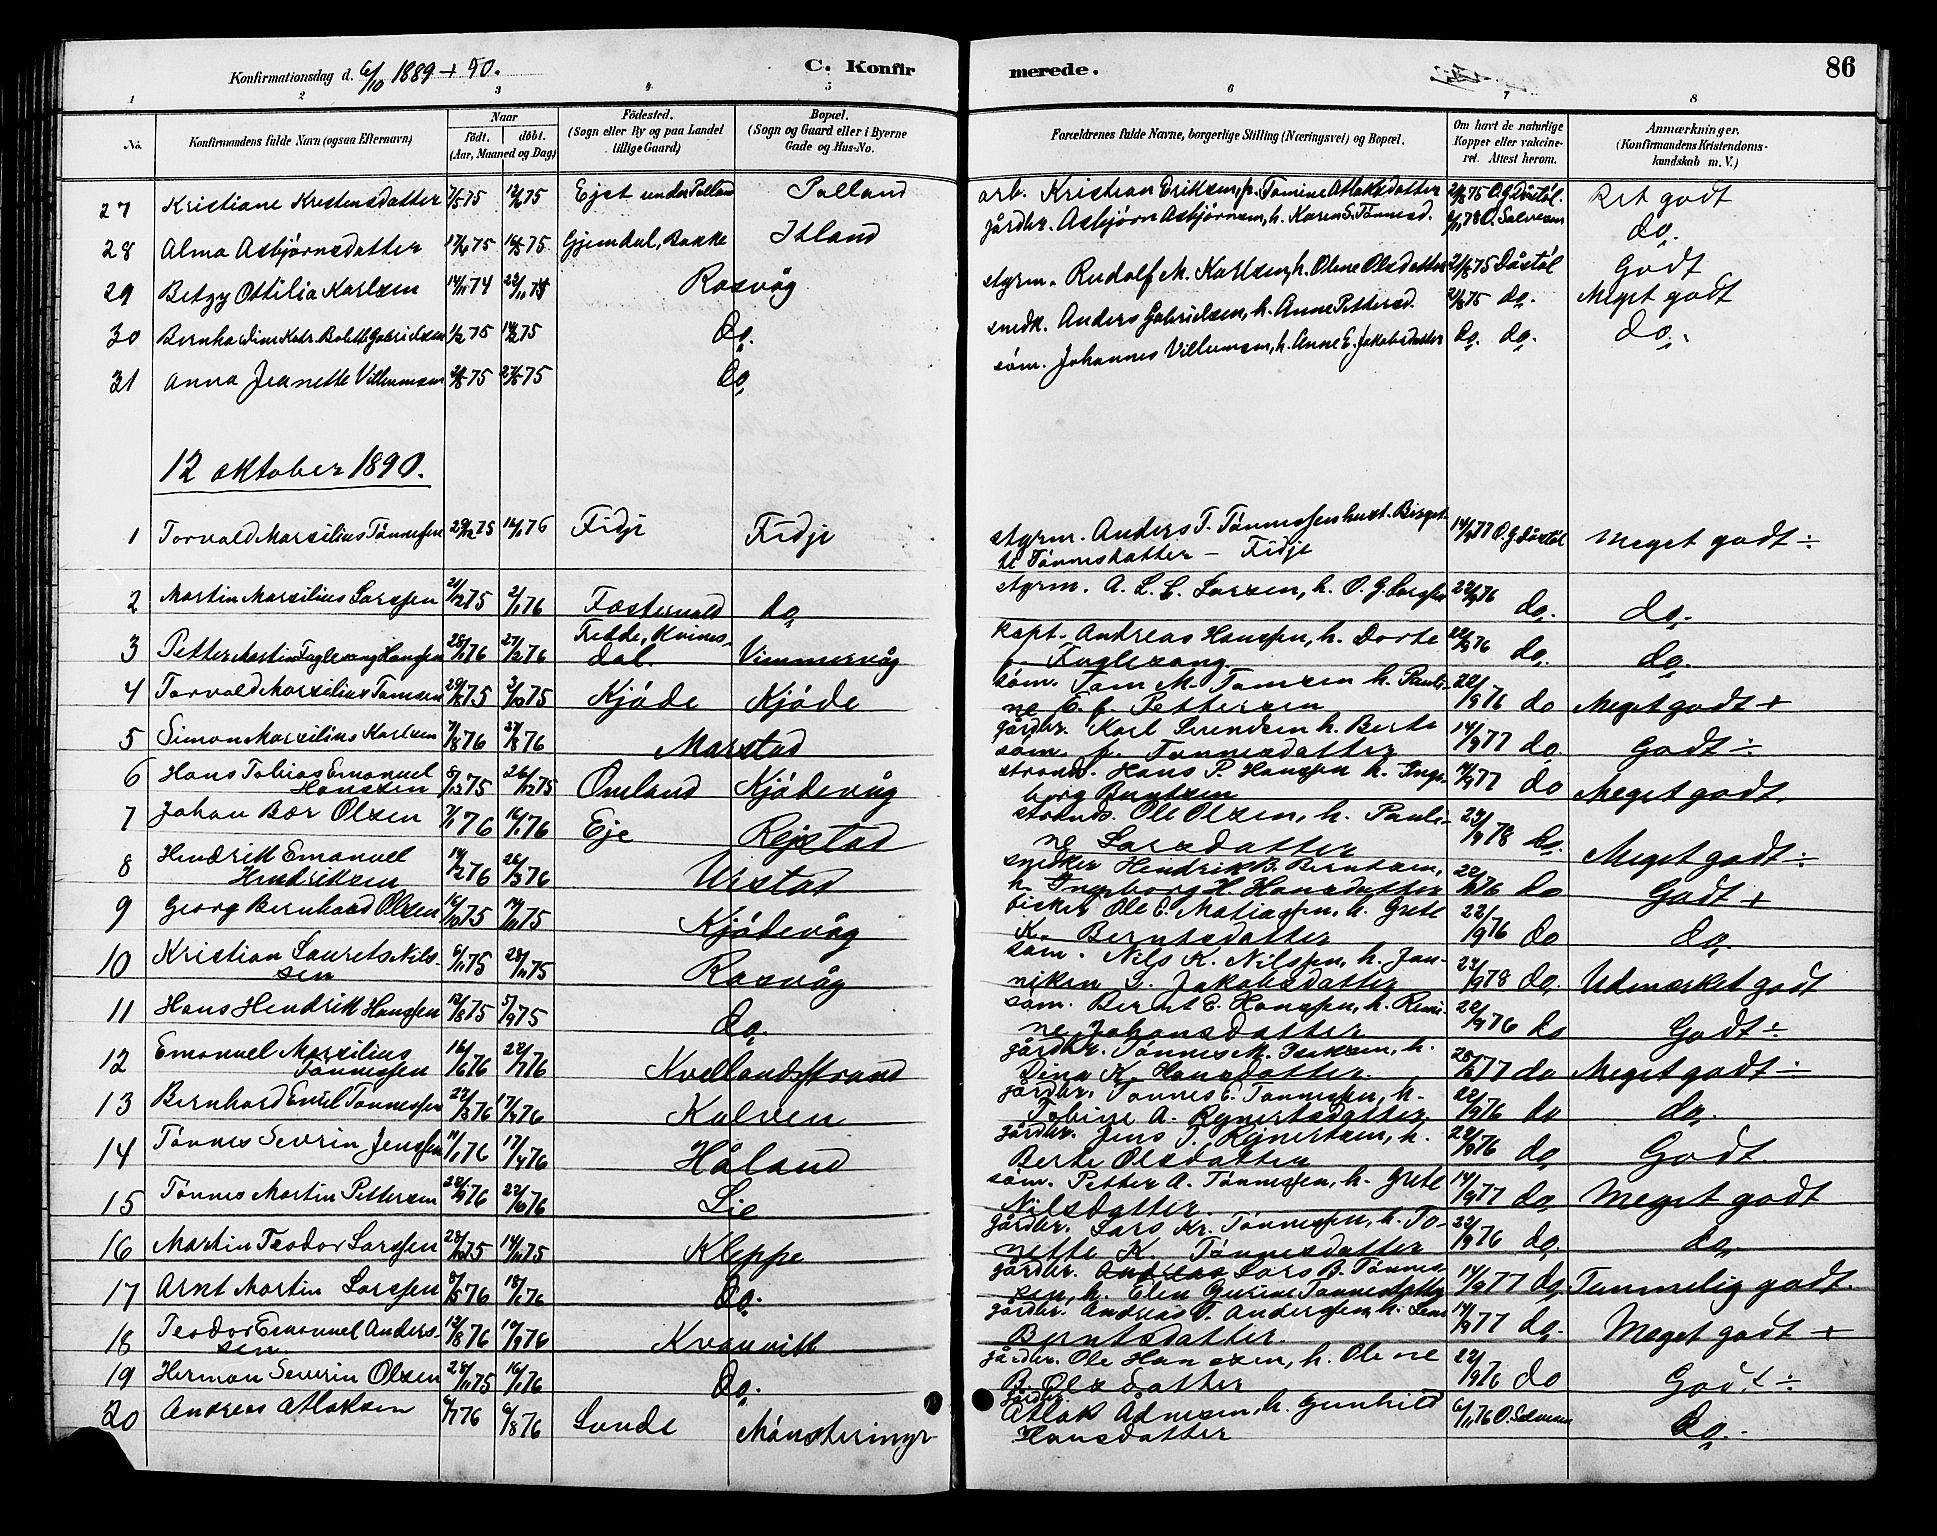 Konfirmationsdag d. 6/10 1889 + 90. C. Konfirmerede. 86
1 2 3 4 5 6 7 8
No. Konfirmandens fulde Navn (ogsaa Efternavn) Naar født. døbt. (Aar, Maaned og Dag) Fødested. (Sogn eller By og paa Landet tillige Gaard) Bopæl. (Sogn og Gaard eller i Byerne Gade og Hus-No. Forældrenes fulde Navne, borgerlige Stilling (Næringsvei) og Bopæl. Om havt de naturlige Kopper eller vakcineret. Attest herom. Anmærkninger. (Konfirmandens Kristendomskundskab m. V.)
27 Kristiane Kristensdatter 75 75 Ejst under Polland Polland arb. Kristian Eriksen, h. Tomine Atlaksdatter 75 O. G. Dåstøl. Ret godt
28 Alma Asbjørnsdatter 75 75 Gjemdal, Bakke Itland gårdbr. Asbjørn Asbjørnsen, h. Karen S. Tønnesd. 78 O. Salvesen do.
29 Betzy Ottilia Karlsen 74 Rosvåg styrm. Rudolf M. Karlsen, h. Olene Olsdatter 75 Dåstøl Godt
30 Bernhardine Katr. Bolette Gabrielsen 75 75 do. snedk. Anders Gabrielsen, h. Anne Pettersd. 75 do. Meget godt
31 Anna Jeanette Villumsen 75 75 do. søm. Johannes Villumsen, h. Anne E. Jakobsdatter do. do. do.
12 oktober 1890.
1 Torvald Marsilius Tønnessen 29/12 75 16/1 76 Fidje Fidje styrm. Anders T. Tønnessen hust. Birget-
te Tønnesdatter - Fidje 14/9 77 O. G. Dåstøl Meget godt ÷
2 Martin Marsilius Larssen 21/12 75 2/1 76 Fostervold do. styrm. A. L. L. Larsen, h. O. G. Larssen 22/9 76 do. do.
3 Petter Martin Fuglevang Hanssen 28/1 76 27/2 76 Fedde, Kvines-
dal. Vimmervåg kapt. Andreas Hanssen, h. Dorte
f. Fuglevang 22/9 76 do. do.
4 Torvald Marsilius Tomsen 75 75 Kjøde Kjøde søm. Tom M. Tomsen h. Pauli-
ne E. f. Pettersen 22/9 76 do Meget godt +
5 Simon Marsilius Karlsen 7/8 76 27/8 76 Marstad gårdbr. Karl Svendsen h. Berte
søm. f. Tønnesdatter 14/9 77 do. Godt ÷
6 Hans Tobias Emanuel
Hanssen 8/12 75 26/12 75 Omland Kjødevåg strands. Hans P. Hanssen h. Inge-
borg Berntsen 14/9 77 do Meget godt.
7 Johan Bær Olsen 7/1 76 16/1 76 Eje Rejstad strands. Ole Olsen, h. Pauli-
ne Larsdatter 24/9 78 do. Meget godt ÷
8 Hendrik Emanuel
Hendriksen 14/2 76 26/3 76 Urstad snedker Hendrik B. Berntsen,
h. Ingeborg H. Hansdatter 22/9 76 do Godt +
9 Georg Bernhard Olsen 16/10 75 75 Kjødevåg fisker Ole E. Matiassen, h. Grete
K. Berntsdatter 22/9 76 do do.
10 Kristian Laurets Nils-
sen 6/11 75 28/11 75 Rosvåg søm. Nils K. Nilssen, h. Jan-
niken S. Jakobsdatter 24/9 78 do. Udmærket godt
11 Hans Hendrik Hanssen 12/8 75 5/9 75 do. søm. Bernt E. Hanssen, h. Remi-
ne Johansdatter 22/9 76 do Godt ÷
12 Emanuel Marsilius
Tønnessen 16/6 76 22/7 76 Kvellandsstrand gårdbr. Tønnes M. Isaksen, h.
Dina K. Hansdatter. 77 do Meget godt ÷
13 Bernhard Emil Tønnessen 22/3 76 17/4 76 Kalven gårdbr. Tønnes E. Tønnessen, h.
Tobine A. Rejnertsdatter 22/9 76 do do.
14 Tønnes Sevrin Jenssen 11/1 76 17/4 76 Håland gårdbr. Jens T. Rejnertsen, h.
Berte Olsdatter 22/9 76 do Godt
15 Tønnes Martin Pettersen 76 76 Lie søm. Petter A. Tønnessen, h. Grete
Nilsdatter. 14/9 77 do. Meget godt
16 Martin Teodor Larssen 28/10 75 14/11 75 Kleppe gårdbr. Lars Kr. Tønnessen, h. To-
nette K. Tønnesdatter 22/9 76 do. do.
17 Arnt Martin Larssen 8/5 76 18/6 76 do. gårdbr. Andreas Lars B. Tønnes-
sen, h. Elen Gurine Tønnesdatter 14/9 77 do. Temmelig godt.
18 Teodor Emanuel Anders-
sen. 12/8 76 10/9 76 Kvanvik gårdbr. Andreas O. Anderssen, h. Lene
Berntsdatter. 14/9 77 do. Meget godt +
19 Herman Severin Olsen 28/11 75 16/1 76 do. gårdbr. Ole Hanssen, h. Olene
B. Olsdatter 22/9 76 do Godt ÷
20 Andreas Atlaksen 6/7 76 6/8 76 Lunde Mønstermyr gårdbr.
Atlak Ådnesen, h. Gunhild
Hansdatter 6/11 76 O. Salvesen do.